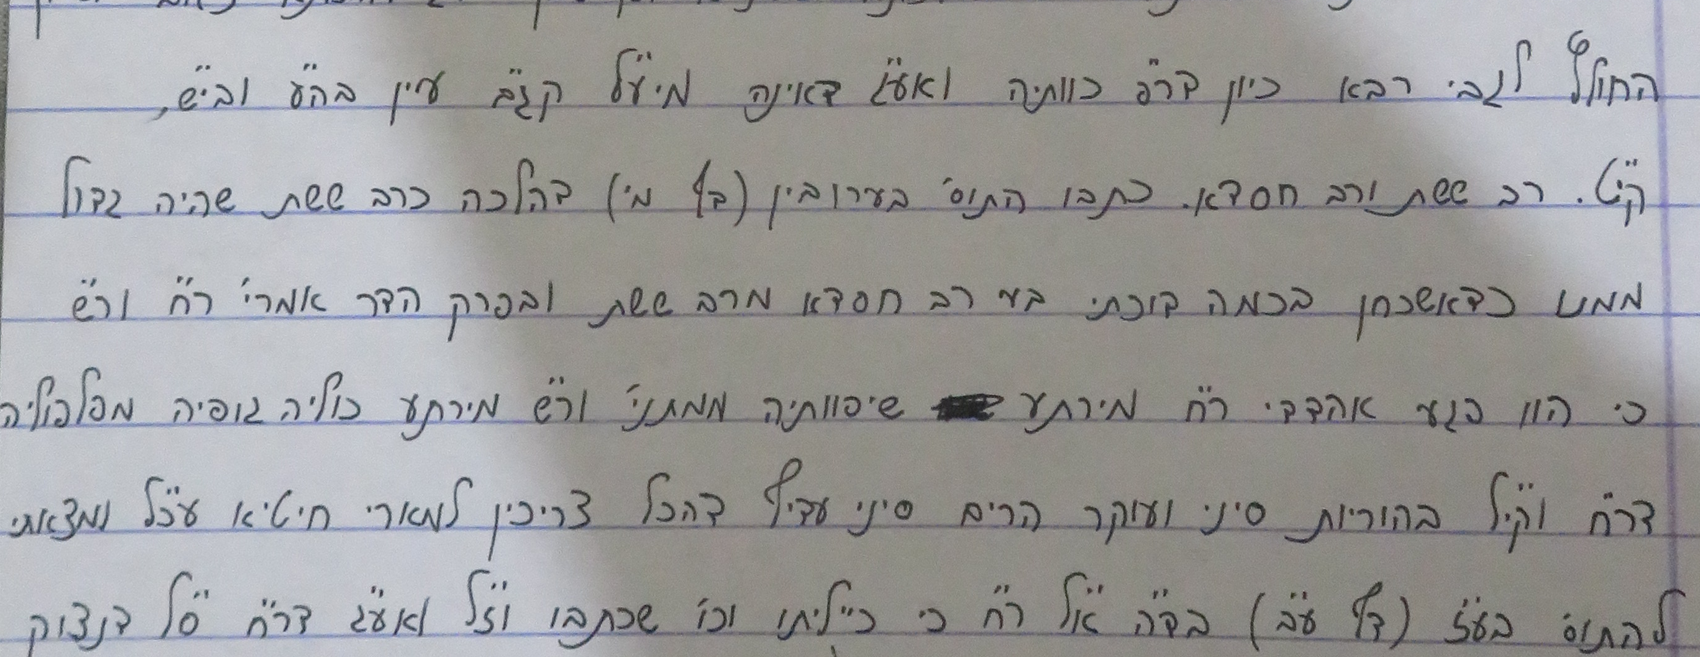 החולץ לגבי רבא כיון דר"פ כוותיה ואע"ג דאינה מיע"ל קג"ם עיין בה"ע ובי"ש,
קי"ט. רב ששת ורב חסדא. כתבו התוס' בערובין (דף מ') דהלכה כרב ששת שהיה גדול
ממנו כדאשכחן בכמה דוכתי בעי רב חסדא מרב ששת ובפרק הדר אמרי' ר"ח ור"ש
כי הוו פגעי אהדדי ר"ח מירתעי שיפוותיה ממתני' ור"ש מירתע כוליה גופיה מפלפוליה
דר"ח וקי"ל בהוריות סיני ועוקר הרים סיני עדיף דהכל צריכין למארי חיטיא עכ"ל ומצאתי
להתוס' בע"ז (דף ע"ב) בד"ה א"ל ר"ח כי כייליתו וכו' שכתבו וז"ל ואע"ג דר"ח ס"ל דנצוק